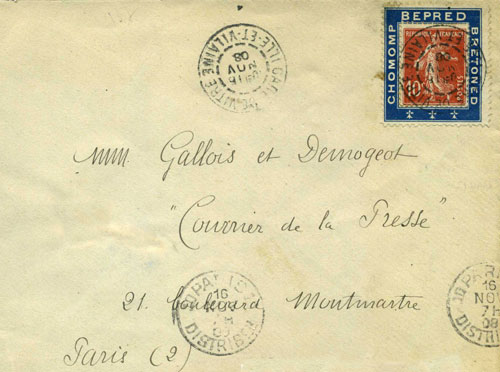 BEPRED
CHOMOMP
BRETONED
RÉPUBLIQUE FRANÇAISE
10
POSTES
ILLE-ET-VILAINE
NOV
08
VITRÉ
MM. Gallois et Demogeot
"Courrier de la Presse"
21. boulevard Montmartre
Paris (2)
PARIS
16
DISTRIB
PAR
16
NO
7H
08
DISTRIB